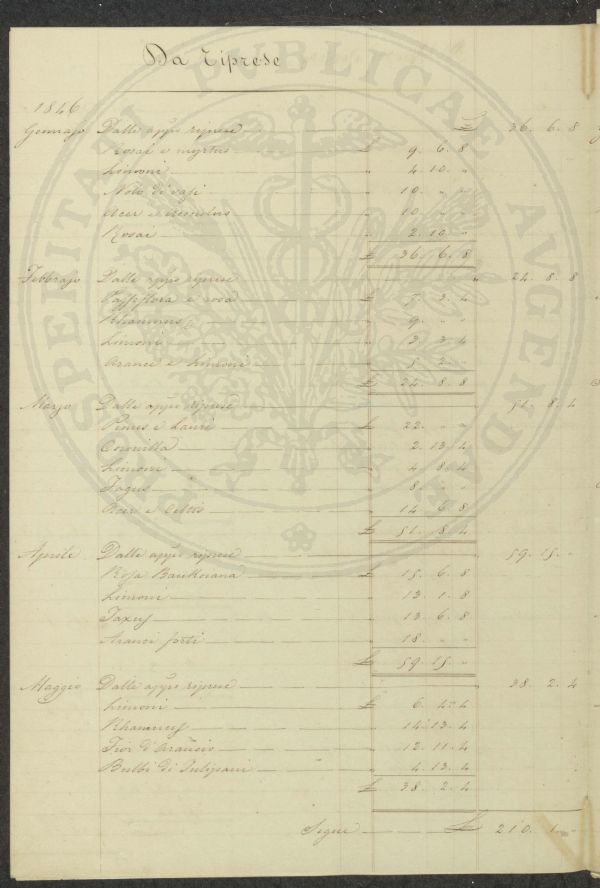 Da riprese
1846
Gennajo Dalle appo riprese £ 36. 6. 8
Rosaj e myrtus £ 9. 6. 8
Limoni " 4. 10. "
Nolo di vasi " 10. " "
Acer e " 10. " "
Rosai " 2. 10. "
£ 36. 6. 8
Febbrajo Dalle appo riprese " 24. 8. 8
Passiflora e rosa £ 7. 3. 4
Rhamnus " 9. " "
Limoni " 3. 3. 4
Aranci e Limoni " 5. 2. "
£ 24. 8. 8
Marzo Dalle appo riprese " 51. 8. 4
Pinus e Lauri £ 22. " "
Coronilla " 2. 13. 4
Limoni " 4. 8. 4
Fagus " 8. " "
Acer e Celtis " 14. 6. 8
£ 51. 8. 4
Aprile Dalle appo riprese " 59. 15. "
Rosa Banksiana £ 15. 6. 8
Limoni " 13. 1. 8
Taxus " 13. 6. 8
Aranci forti " 18. " "
£ 59. 15. "
Maggio Dalle appo riprese " 38. 2. 4
Limoni £ 6. 4. 4
Rhamnus " 14. 13. 4
Fior d'Arancio " 12. 11. 4
Bulbi di Tulipani " 4. 13. 4
£ 38. 2. 4
Segue £ 210. 1. "
PROSPERITATI PUBLICAE AUGENDAE